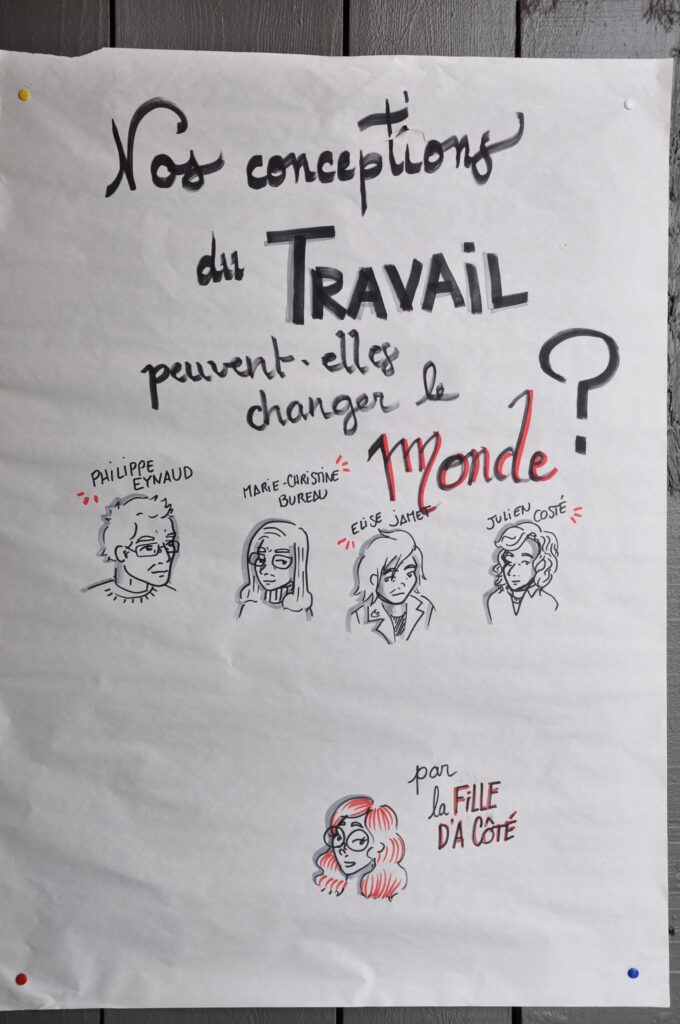 Nos conceptions
du TRAVAIL
peuvent-elles
changer le
Monde ?
PHILIPPE
EYNAUD
MARIE-CHRISTINE
BUREAU
ELISE JAMET
JULIEN COSTÉ
par
la FILLE
D'A CÔTÉ